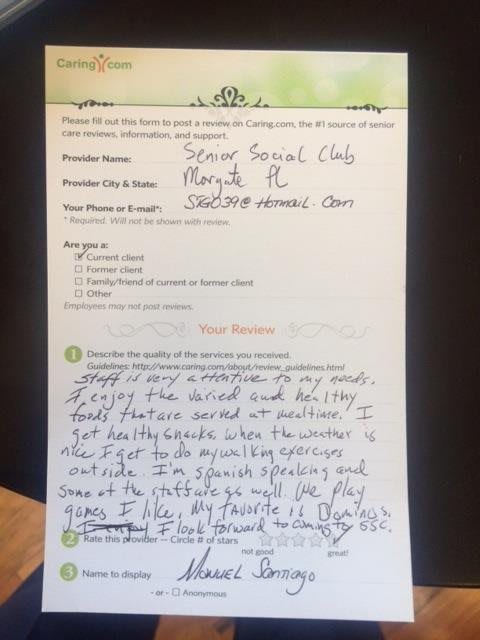 Caring.com
Please fill out this form to post a review on Caring.com, the #1 source of senior
care reviews, information, and support.
Provider Name: Senior Social Club
Provider City & State: Margate fl
Your Phone or E-mail*: STG039@Hotmail.Com
* Required. Will not be shown with review.
Are you a:
Current client
Former client
Family/friend of current or former client
Other
Employees may not post reviews.
Your Review
1 Describe the quality of the services you received.
Guidelines: http://www.caring.com/about/review_guidelines.html
Staff is very attentive to my needs.
I enjoy the varied and healthy
foods that are served at mealtime. I
get healthy snacks. When the weather is
nice I get to do my walking exercises
outside. I'm spanish speaking and
some of the staff are as well. We play
games I like, My favorite is Dominos.
I enjoy I look forward to coming to SSC.
2 Rate this provider -- Circle # of stars
not good great!
3 Name to display Manuel Santiago
- or - Anonymous